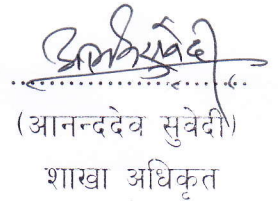 (आनन्ददेव सुवेदी)
शाखा अधिकृत